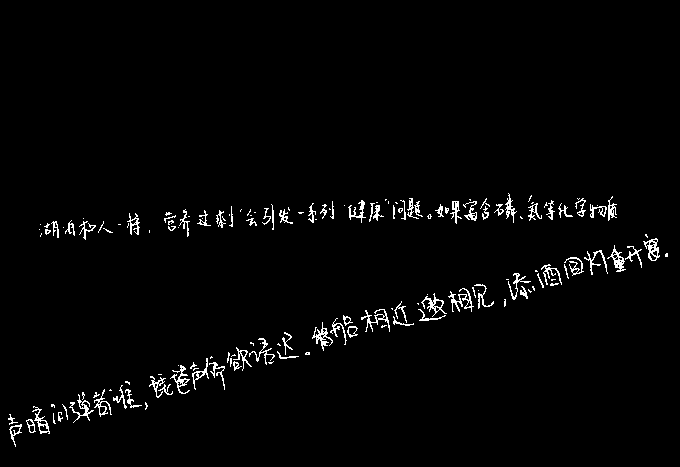 湖泊和人一样，营养过剩会引发一系列“健康”问题。如果富含磷、氮等化学物质
声暗问弹者谁，琵琶声停欲语迟。移船相近邀相见，添酒回灯重开宴。